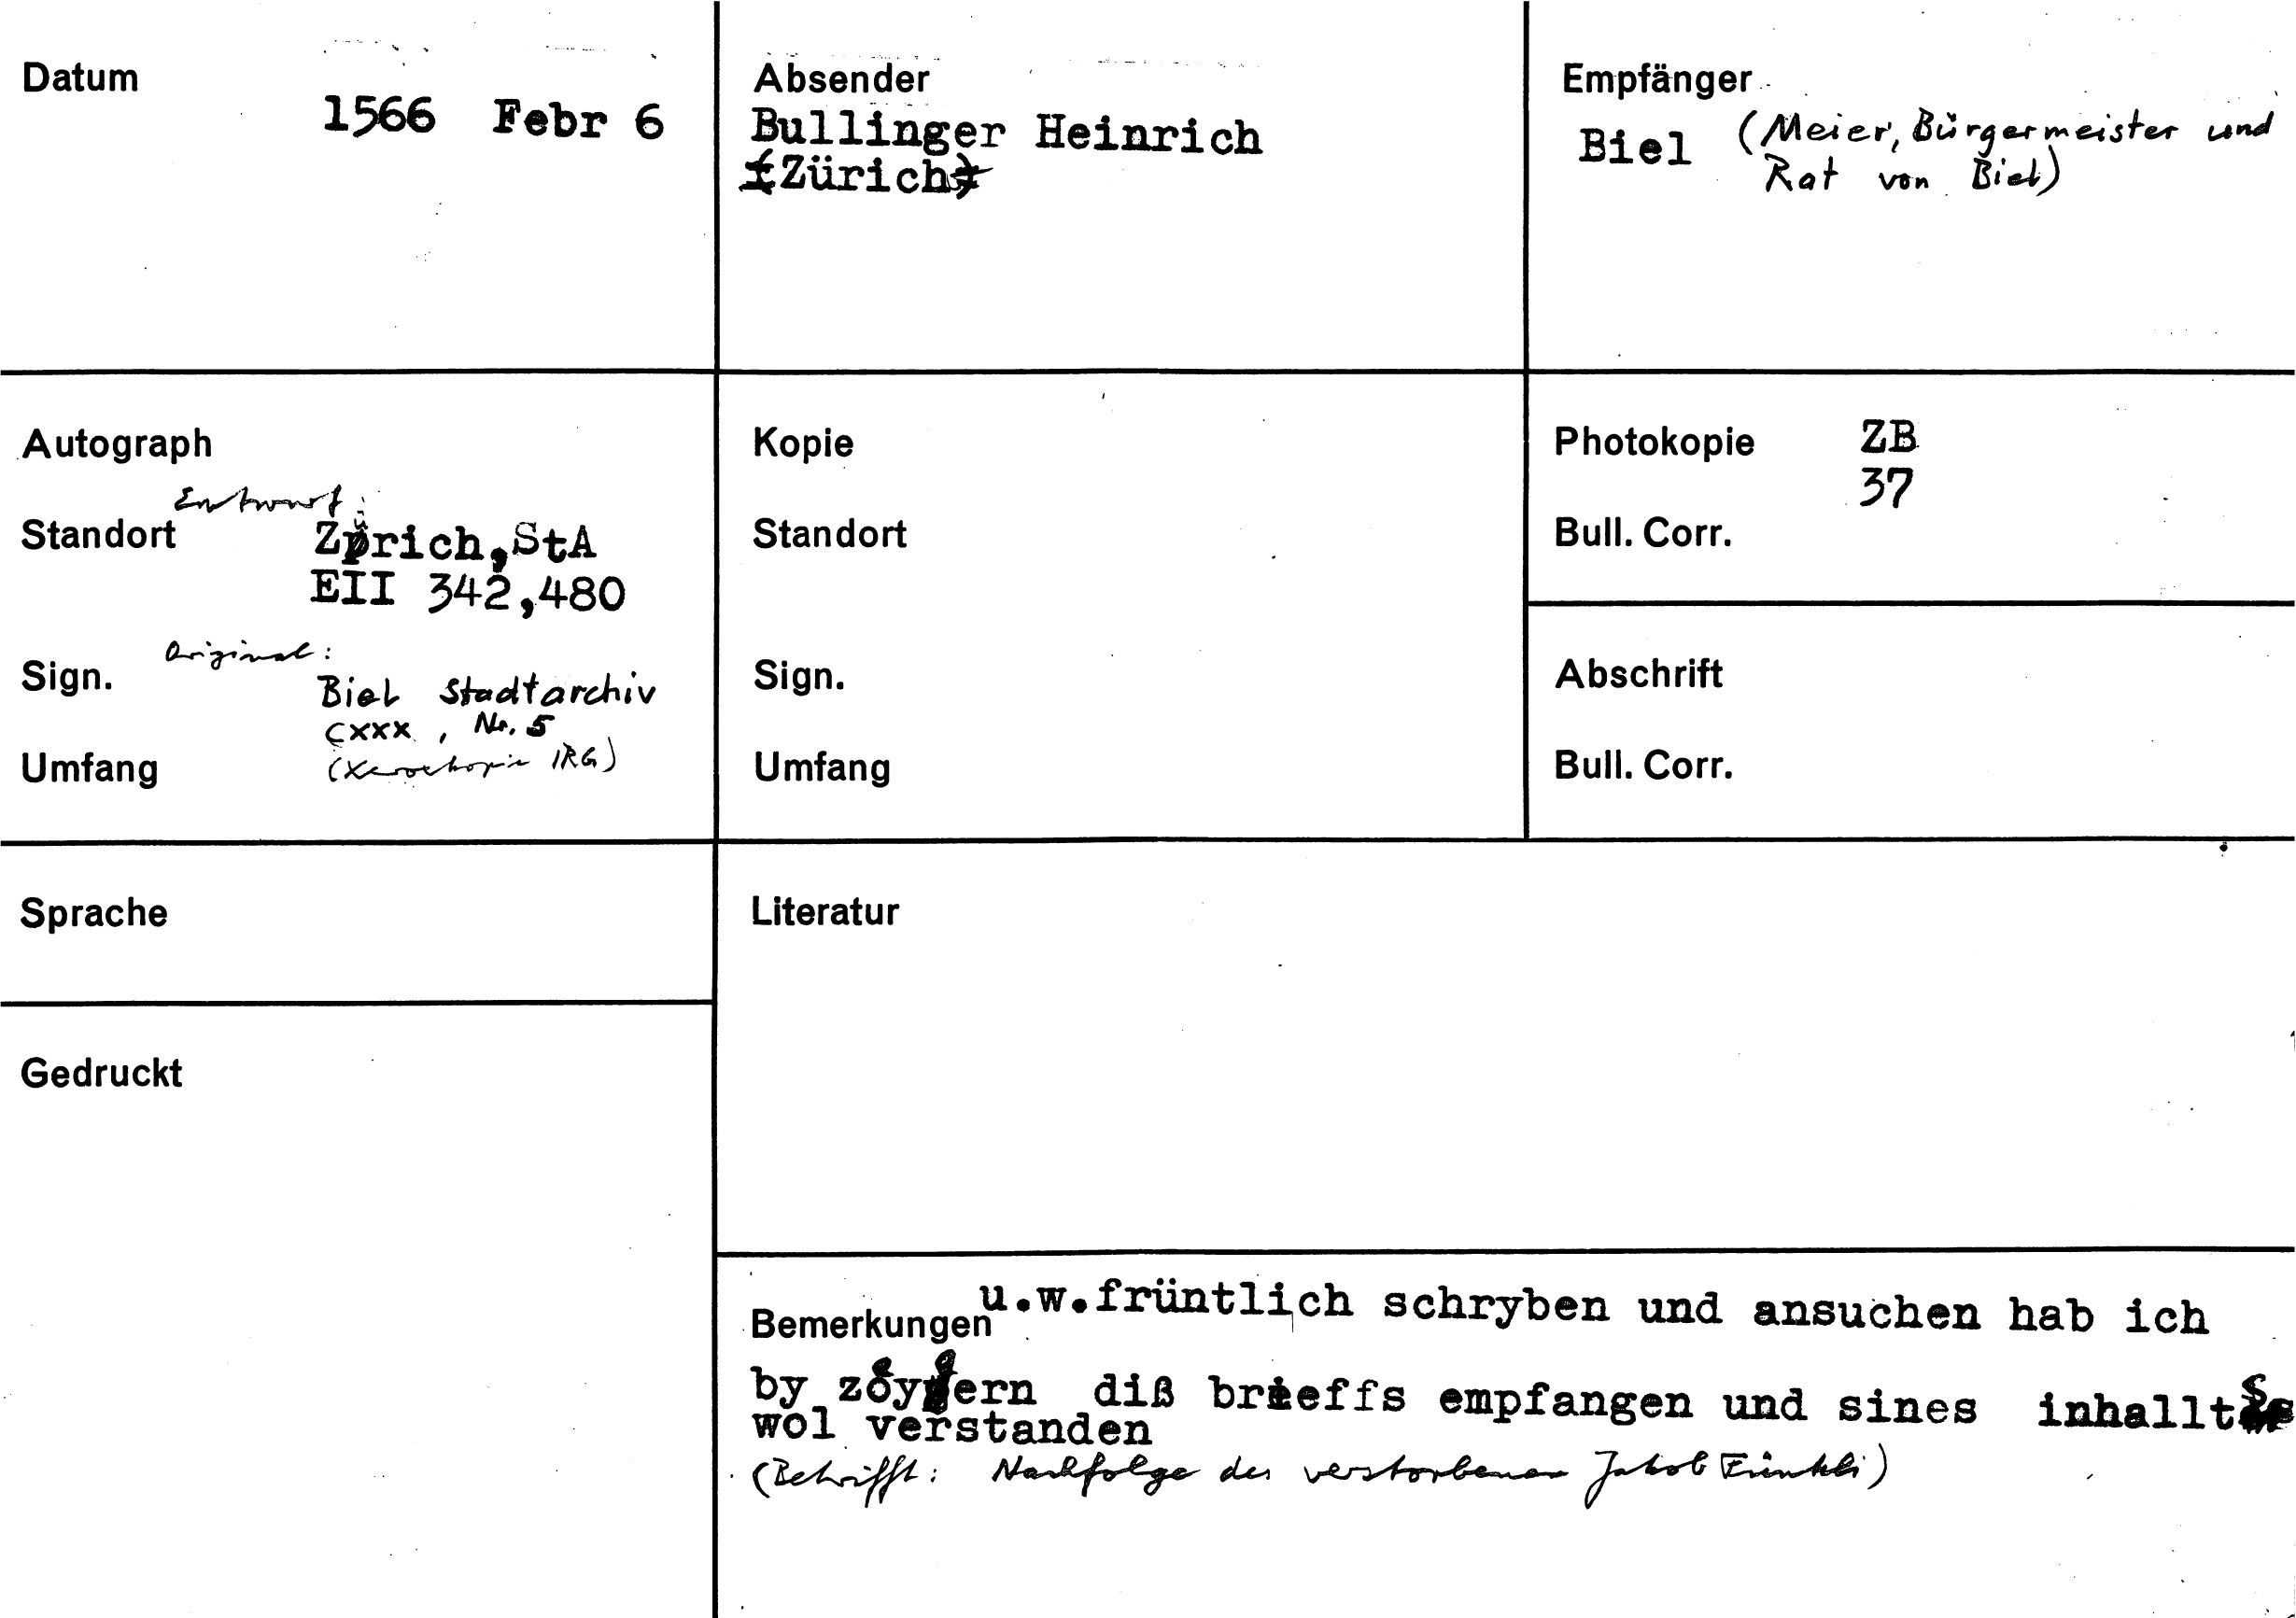 Datum
1566 Febr 6
Absender
Bullinger Heinrich
(Zürich)
Empfänger
Biel (Meier, Bürgermeister und
Rat von Biel)
Autograph
Entwurf:
Standort Zürich, StA
EII 342,480
Original:
Sign. Biel Stadtarchiv
CXXX, Nr. 5
Umfang (Xerokopie IRG)
Kopie
Standort
Sign.
Umfang
Photokopie ZB
37
Bull. Corr.
Abschrift
Bull. Corr.
Sprache
Gedruckt
Literatur
Bemerkungen u.w.früntlich schryben und ansuchen hab ich
by zöygern diß brieffs empfangen und sines inhallts
wol verstanden
(Betrifft: Nachfolge des verstorbenen Jakob Fünkli)